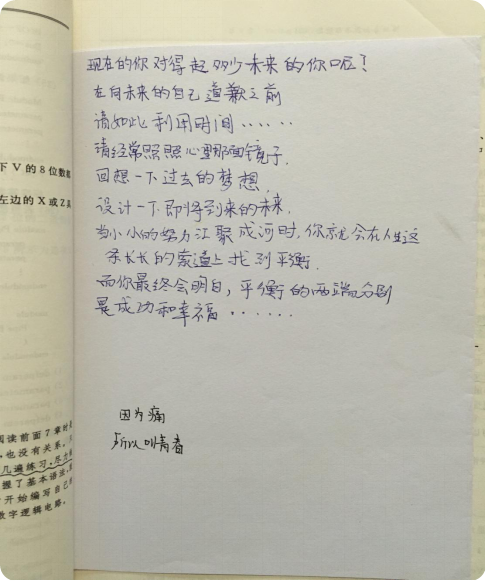 下 V 的 8 位数
左边的 X 或 Z 具
阅读前面 7 章时
，也没有关系。
几遍练习，尽力
握了基本语法，
开始编写自己
数字逻辑电路。
现在的你对得起多少未来的你呢？
在向未来的自己道歉之前
请如此利用时间......
请经常照照心里那面镜子.
回想一下过去的梦想,
设计一下即将到来的未来.
当小小的努力汇聚成河时,你就会在人生这
条长长的索道上找到平衡.
而你最终会明白，平衡的两端分别
是成功和幸福......
因为痛
所以叫青春